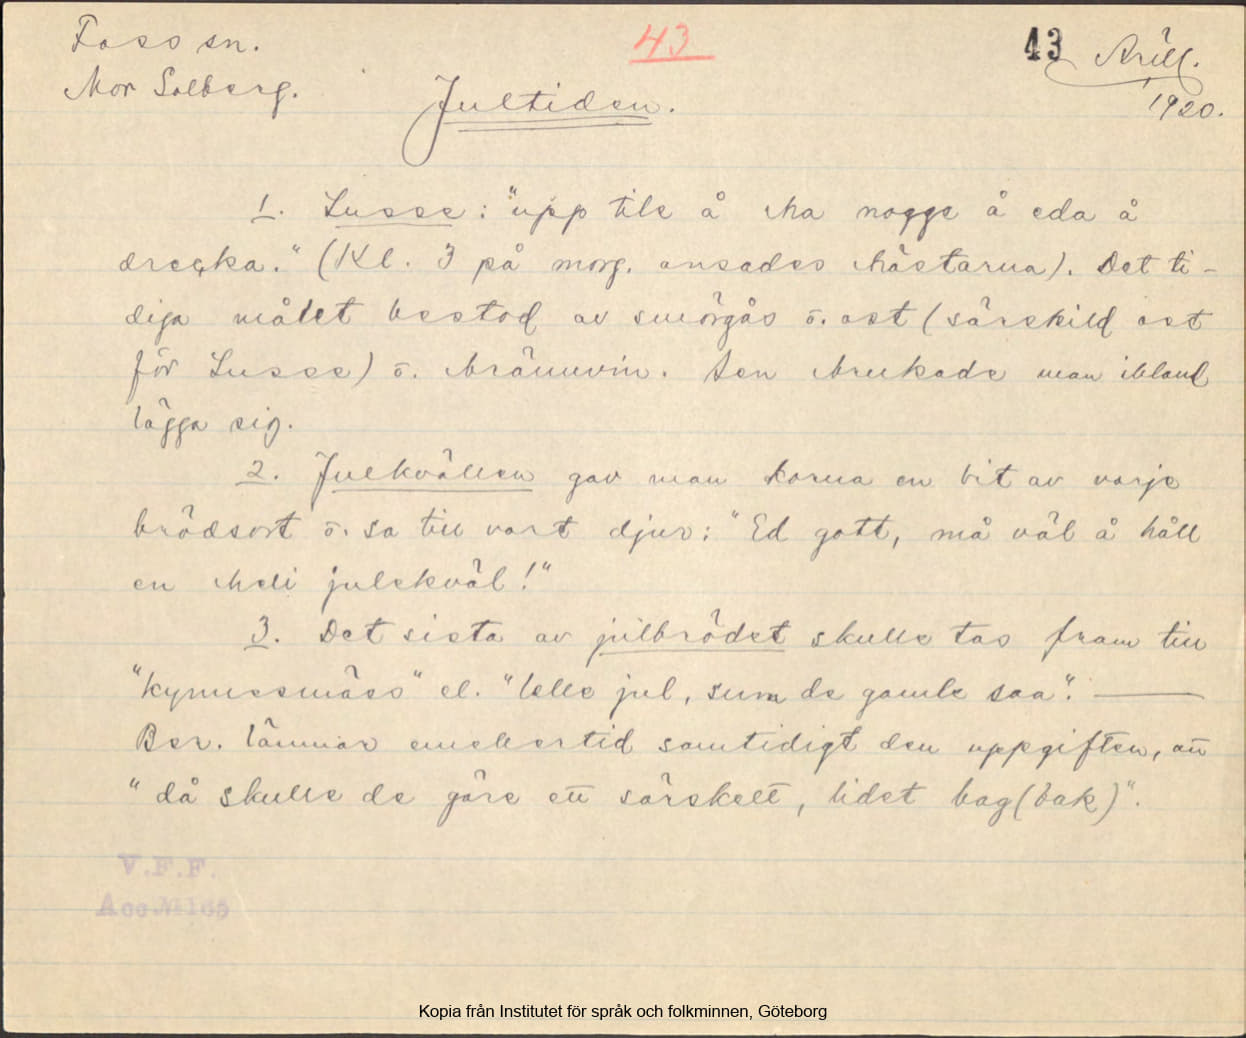 Foss sn. 43 43 Arill.
Mor Solberg. Jultiden. 1920.
1. Lusse: "upp tile å ha nogge å eda å
drecka." (Kl. 3 på morg. ansades hästarna). Det ti-
diga målet bestod av smörgås o. ost (särskild ost
för Lusse) o. brännvin. Sen brukade man ibland
lägga sig.
2. Julkvällen gav man korna en bit av varje
brödsort o. sa till vart djur: "Ed gott, må väl å håll
en heli julekväl!"
3. Det sista av julbrödet skulle tas fram till
"kynnesmäss" el. "lelle jul, sum de gamle saa". —
Ber. lämnar emellertid samtidigt den uppgiften, att
"då skulle de göre ett särskelt, lidet bag (bak)".
V.F.F.
Acc № 165
Kopia från Institutet för språk och folkminnen, Göteborg